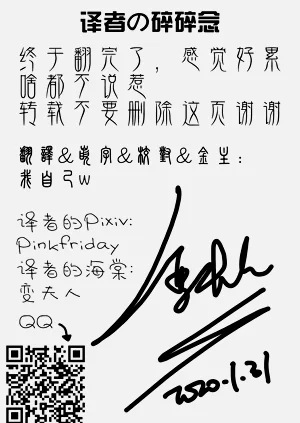 译者の碎碎念
终于翻完了，感觉好累
啥都不说惹
转载不要删除这页谢谢
翻譯&嵌字&校對&金主：
我自己w
译者的Pixiv:
Pinkfriday
译者的海棠:
变夫人
QQ
2020.1.21